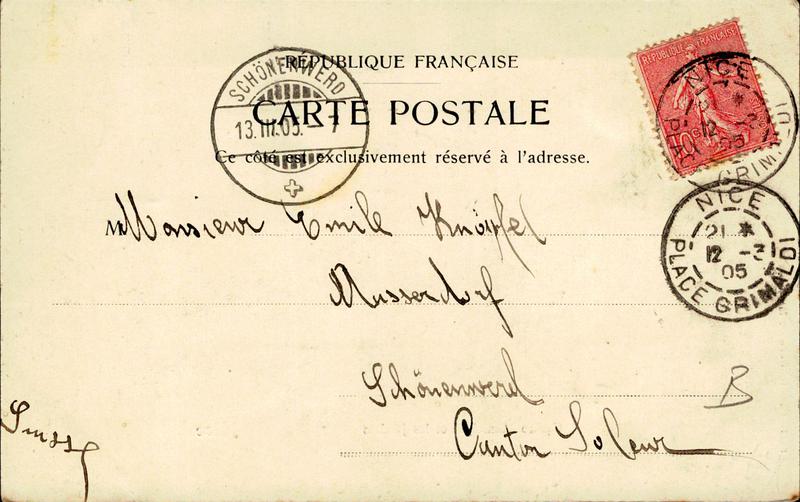 RÉPUBLIQUE FRANÇAISE
CARTE POSTALE
Ce côté est exclusivement réservé à l'adresse.
SCHÖNENWERD
13.III.05.-7
REPUBLIQUE FRANÇAISE
10
NICE
12 -3
05
PLACE GRIMALDI
NICE
21 *
12 -3
05
PLACE GRIMALDI
Monsieur Emile Knöpfel
Musserdorf
Schönenwerd
B
Canton Soleur